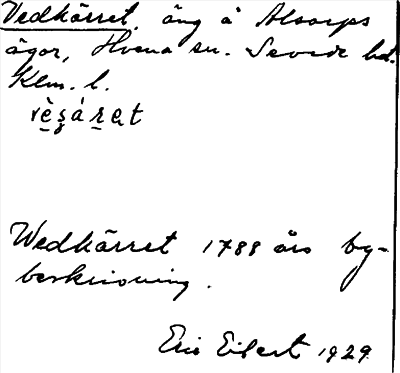 Vedkärret, äng å Alsarps
ägor, Hvena sn. Sevede hd.
Klm. l.
Wedkärret 1788 års by-
beskrivning.
Eric Eilert 1929